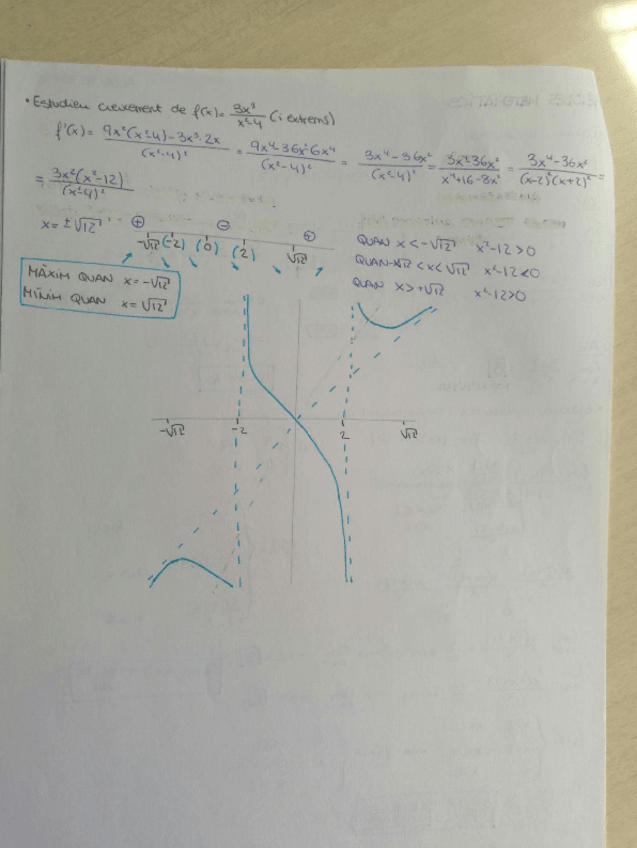 • Estudieu creixement de f(x) = 3x³/x²-4 (i extrems)
f'(x) = 9x²(x²-4)-3x³·2x/(x²-4)² = 9x⁴-36x²-6x⁴/(x²-4)² = 3x⁴-36x²/(x²-4)² = 3x⁴-36x²/x⁴+16-8x² = 3x⁴-36x²/(x-2)²(x+2)² =
= 3x²(x²-12)/(x²-4)²
x = ±√12 ⊕ ⊖ ⊕
-√12 (-2) (0) (2) √12
QUAN x < -√12 x²-12 > 0
QUAN -√12 < x < √12 x²-12 < 0
QUAN x > +√12 x²-12 > 0
MÀXIM QUAN x = -√12
MÍNIM QUAN x = √12
-√12 -2 2 √12